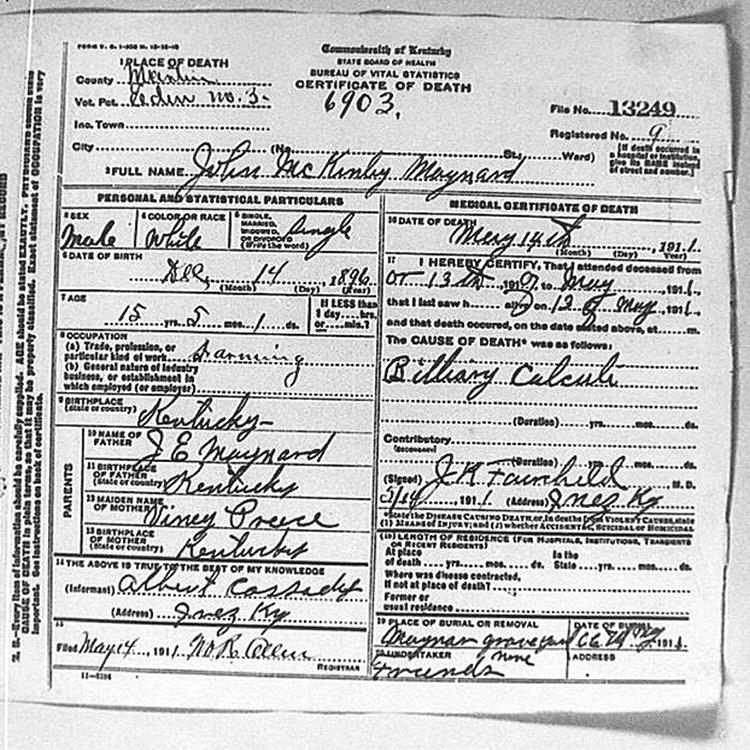 FORM V. S. 1-
Commonwealth of Kentucky
STATE BOARD OF HEALTH
BUREAU OF VITAL STATISTICS
CERTIFICATE OF DEATH
1 PLACE OF DEATH
County Martin
Vot. Pct. Eden No. 3-
Inc. Town
City (No. St.; Ward)
6903.
File No. 13249
Registered No. 9
[If death occurred in a hospital or institution, give its NAME instead of street and number.]
2 FULL NAME John McKinby Maynard
PERSONAL AND STATISTICAL PARTICULARS
3 SEX Male
4 COLOR OR RACE White
5 SINGLE, MARRIED, WIDOWED, OR DIVORCED (Write the word) Single
6 DATE OF BIRTH Dec. 14, 1896
(Month) (Day) (Year)
7 AGE 15 yrs. 5 mos. 1 ds.
If LESS than 1 day....hrs. or....min.?
8 OCCUPATION
(a) Trade, profession, or particular kind of work Farming
(b) General nature of industry business, or establishment in which employed (or employer)
9 BIRTHPLACE (State or country) Kentucky-
PARENTS
10 NAME OF FATHER J E Maynard
11 BIRTHPLACE OF FATHER (State or country) Kentucky
12 MAIDEN NAME OF MOTHER Viney Preece
13 BIRTHPLACE OF MOTHER (State or country) Kentucky
14 THE ABOVE IS TRUE TO THE BEST OF MY KNOWLEDGE
(Informant) Albert Cassady
(Address) Inez Ky
15
Filed May 14, 1911. REGISTRAR
11-6184
MEDICAL CERTIFICATE OF DEATH
16 DATE OF DEATH May 14th, 1911.
(Month) (Day) (Year)
17 I HEREBY CERTIFY, That I attended deceased from
13th 191 , to May 1911.
that I last saw h alive on 13 of May 1911.
and that death occured, on the date stated above, at m.
The CAUSE OF DEATH* was as follows:
Billiary Calculi
(Duration) yrs. mos. ds.
Contributory
(SECONDARY)
(Duration) yrs. mos. ds.
(Signed) J. H Fairchild M. D.
5/14 1911. (Address) Inez Ky
*State the DISEASE CAUSING DEATH, or, in deaths from VIOLENT CAUSES, state (1) MEANS OF INJURY; and (2) whether ACCIDENTAL, SUICIDAL or HOMICIDAL.
18 LENGTH OF RESIDENCE (FOR HOSPITALS, INSTITUTIONS, TRANSIENTS OR RECENT RESIDENTS)
At place of death yrs. mos. ds. In the State yrs. mos. ds.
Where was disease contracted, if not at place of death?
Former or usual residence
19 PLACE OF BURIAL OR REMOVAL Maynar graveyard
DATE OF BURIAL May 1911.
20 UNDERTAKER none
Friends
ADDRESS
N. B.—Every item of information should be carefully supplied. AGE should be stated EXACTLY. PHYSICIANS should state
CAUSE OF DEATH in plain terms so that it may be properly classified. Exact statement of OCCUPATION is very
important. See instructions on back of certificate.